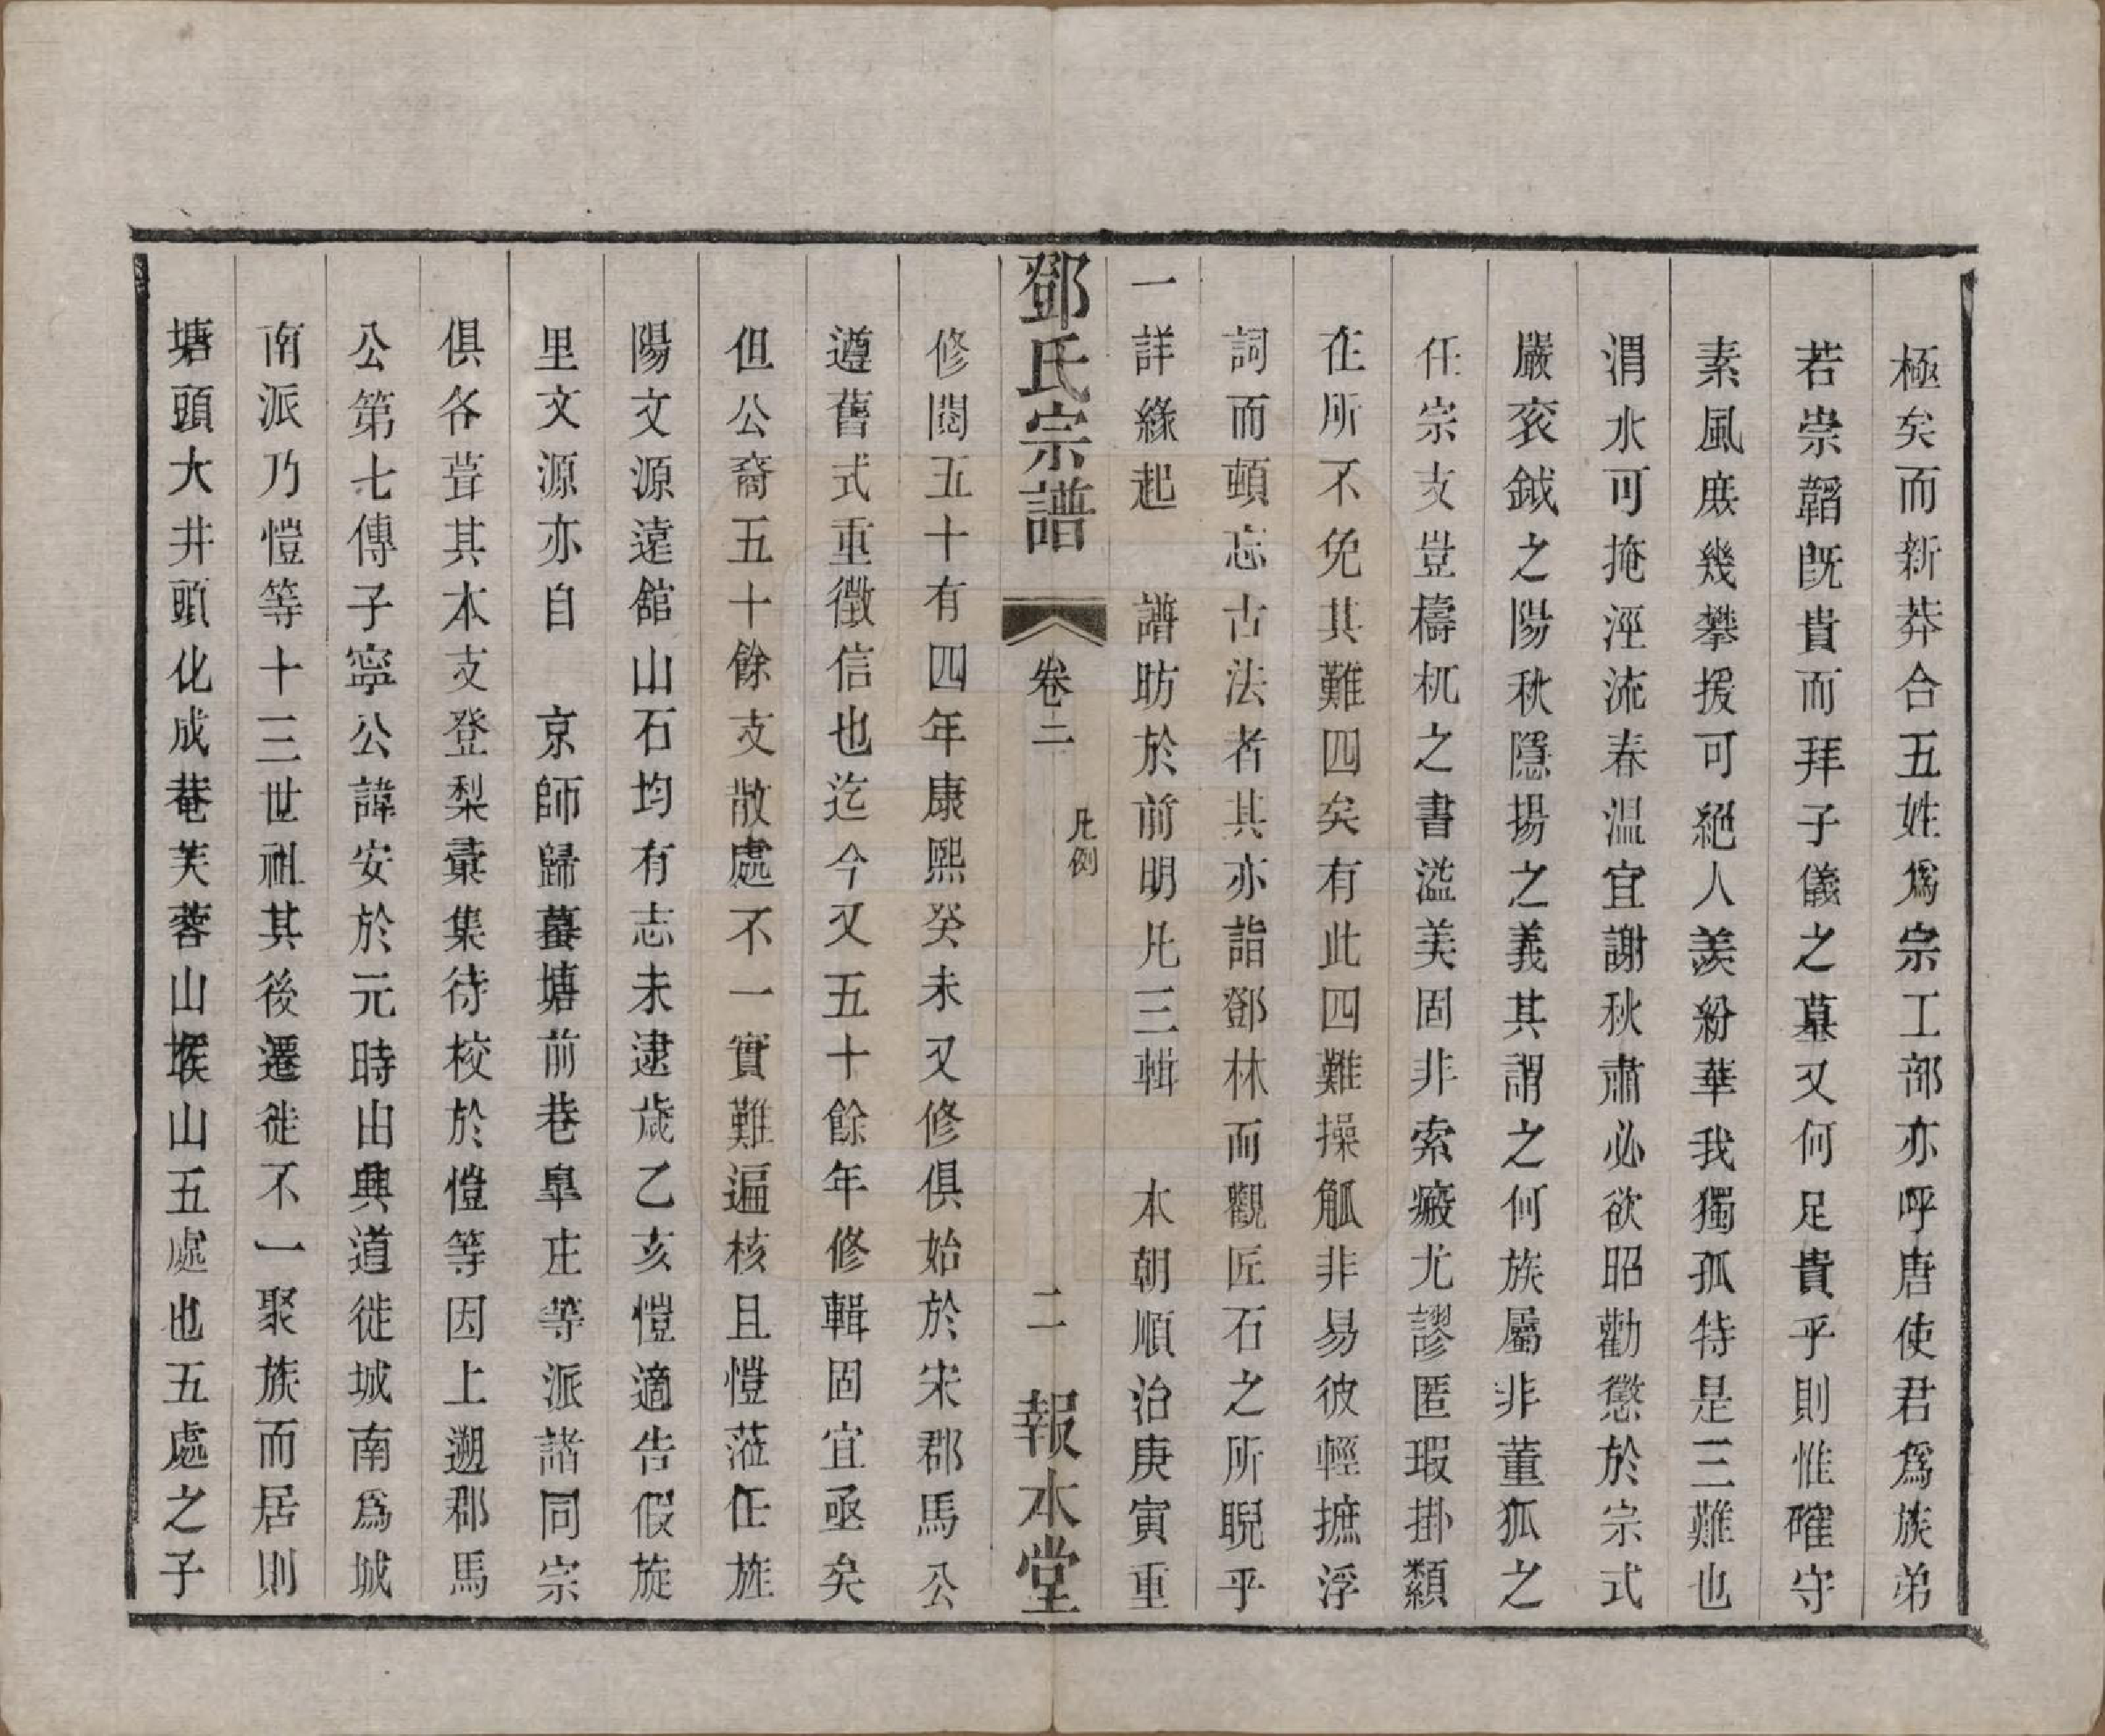 極矣而新莽合五姓爲宗工部亦呼唐使君爲族弟
若崇韜旣貴而拜子儀之墓又何足貴乎則惟確守
素風庶幾攀援可絕人羨紛華我獨孤特是三難也
渭水可掩涇流春温宜謝秋肅必欲昭勸懲於宗式
嚴衮鉞之陽秋隱揚之義其謂之何族屬非董狐之
任宗支豈檮杌之書溢美固非索瘢尤謬匿瑕掛纇
在所不免其難四矣有此四難操觚非易彼輕摭浮
詞而頓忘古法者其亦詣鄧林而觀匠石之所睨乎
一詳緣起 譜昉於前明凡三輯 本朝順治庚寅重
鄧氏宗譜 卷二 凡例 二 報本堂
修閱五十有四年康熙癸未又修俱始於宋郡馬公
遵舊式重徵信也迄今又五十餘年修輯固宜亟矣
但公裔五十餘支散處不一實難遍核且愷蒞任旌
陽文源遠館山石均有志未逮歲乙亥愷適告假旋
里文源亦自 京師歸蓋塘前巷皐庄等派諸同宗
俱各葺其本支登梨彙集待校於愷等因上遡郡馬
公第七傳子寧公諱安於元時由興道徙城南爲城
南派乃愷等十三世祖其後遷徙不一聚族而居則
塘頭大井頭化成菴芙蓉山堠山五處也五處之子